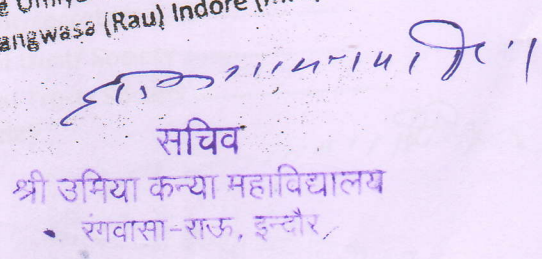 angwasa (Rau) Indore
सचिव
श्री उमिया कन्या महाविद्यालय
रंगवासा-राऊ, इन्दौर